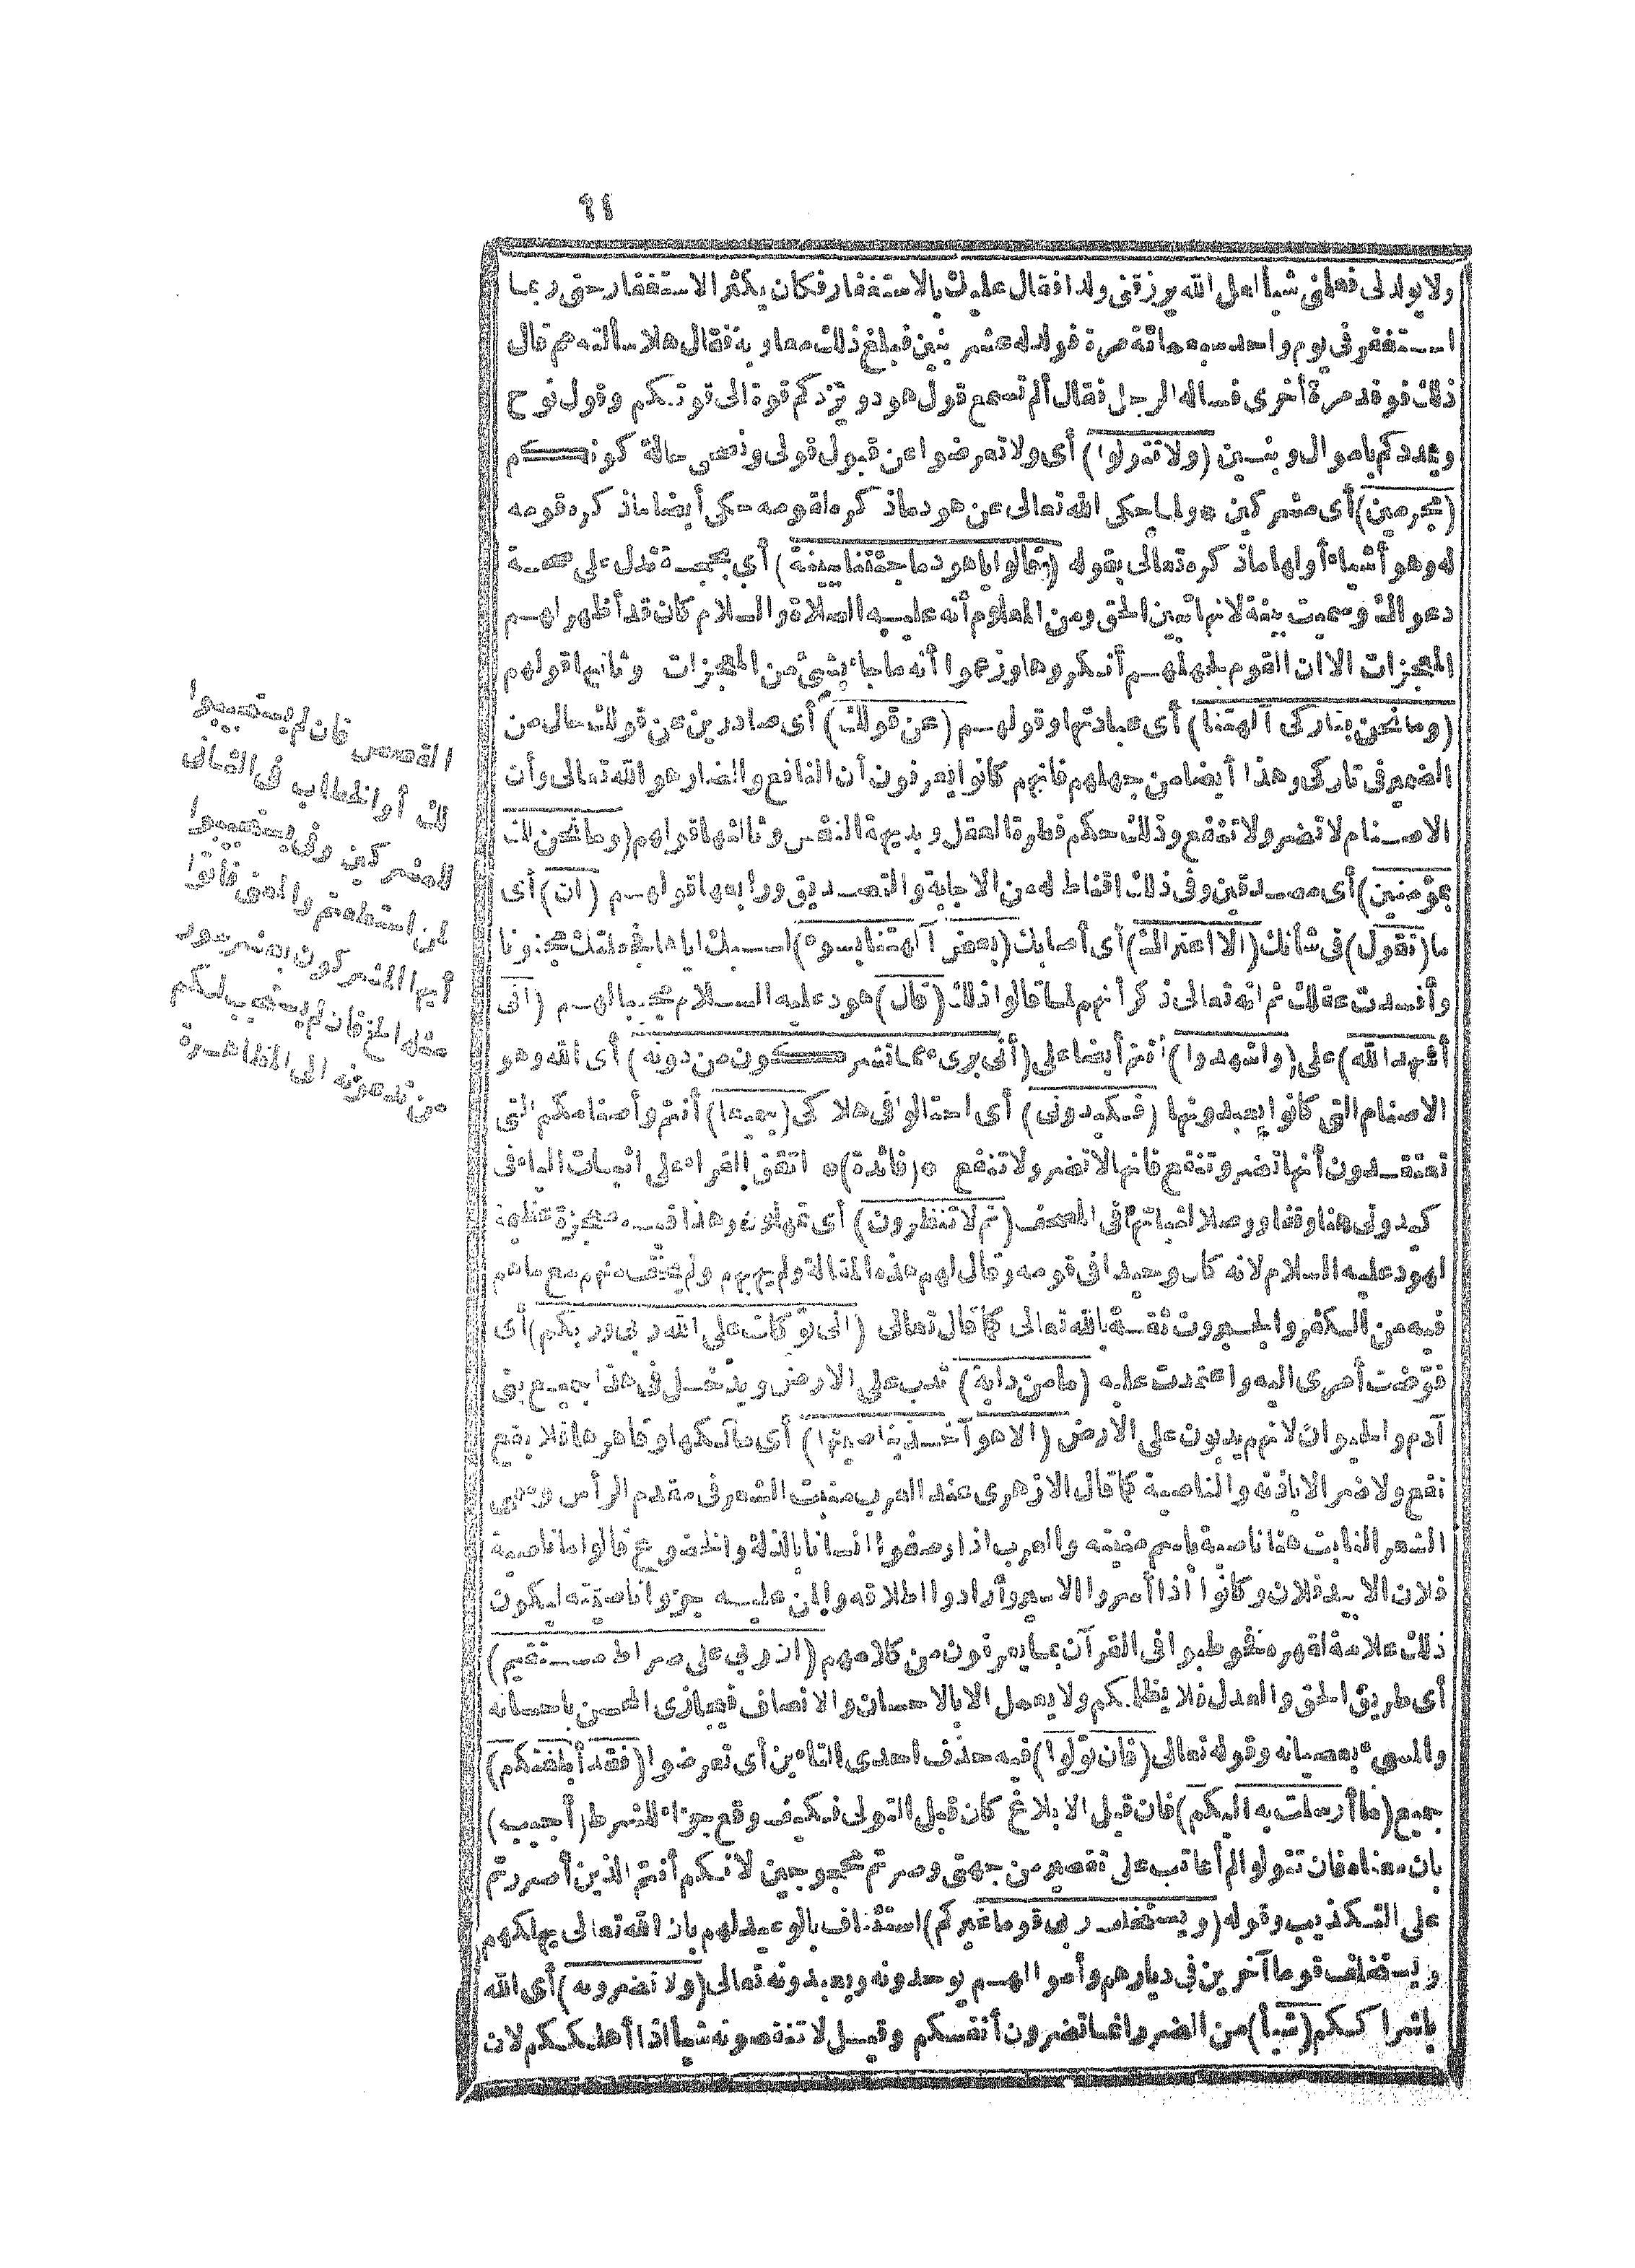 ٦٤
ولا يولد لى فعلمنى شيأ لعل الله يرزقنى ولدا فقال عليك بالاستغفار فكان يكثر الاستغفار حتى ربما
استغفر فى يوم واحد سبعمائة مرة فولد له عشر بنين فبلغ ذلك معاوية فقال هلا سألته مم قال
ذلك فوفد مرة أخرى فساله الرجل فقال ألم تسمع قول هود ويزدكم قوة الى قوتكم وقول نوح
ويمددكم باموال وبنين (ولا تتولوا) أى ولا تعرضوا عن قبول قولى ونصحى حالة كونكم
(مجرمين) أى مشركين * ولما حكى الله تعالى عن هود ما ذكره لقومه حكى أيضا ما ذكره قومه
له وهو أشياء أولها ما ذكره تعالى بقوله (قالوا يا هود ما جئتنا ببينة) أى بحجة تدل على صحة
دعواك وسميت بينة لانها تبين الحق ومن المعلوم أنه عليه الصلاة والسلام كان قد أظهر لهم
المعجزات الا ان القوم لجهلهم أنكروها وزعموا أنه ما جاء بشئ من المعجزات وثانيها قولهم
(وما نحن بتاركى آلهتنا) أى عبادتها وقولهم (عن قولك) أى صادرين عن قولك حال من
الضمير فى تاركى وهذا أيضا من جهلهم فانهم كانوا يعرفون أن النافع والضار هو الله تعالى وأن
الاصنام لا تضر ولا تنفع وذلك حكم فطرة العقل وبديهة النفس وثالثها قولهم (وما نحن لك
بمؤمنين) أى مصدقين وفى ذلك اقناط له من الاجابة والتصديق ورابعها قولهم (ان) أى
ما (نقول) فى شأنك (الا اعتراك) أى أصابك (بعض آلهتنا بسوء) لسبك اياها فجعلتك مجنونا
وأفسدت عقلك ثم انه تعالى ذكر أنهم لما قالوا ذلك (قال) هود عليه السلام مجيبا لهم (انى
أشهد الله) على (واشهدوا) أنتم أيضا على (أنى برىء مما تشركون من دونه) أى الله وهو
الاصنام التى كانوا يعبدونها (فكيدونى) أى احتالوا فى هلاكى (جميعا) أنتم وأصنامكم التى
تعتقدون أنها تضر وتنفع فانها لا تضر ولا تنفع *(فائدة)* اتفق القراء على اثبات الياء فى
كيدونى هنا وقفا ووصلا لثباتها فى المصحف (ثم لا تنظرون) أى تمهلون وهذا فيه معجزة عظيمة
لهود عليه السلام لانه كان وحيدا فى قومه وقال لهم هذه المقالة ولم يهبهم ولم يخف منهم مع ما هم
فيه من الكفر والجبروت ثقة بالله تعالى كما قال تعالى (انى توكلت على الله ربى وربكم) أى
فوّضت أمرى اليه واعتمدت عليه (ما من دابة) تدب على الارض ويدخل فى هذا جميع بنى
آدم والحيوان لانهم يدبون على الارض (الا هو آخذ بناصيتها) أى مالكها وقاهرها فلا يقع
نفع ولا ضر الا باذنه والناصية كما قال الازهرى عند العرب منبت الشعر فى مقدم الرأس وسمى
الشعر النابت هنا ناصية باسم منبته والعرب اذا وصفوا انسانا بالذلة والخضوع قالوا ما ناصية
فلان الا بيد فلان وكانوا اذا أسروا الاسير وأرادوا اطلاقه والمن عليه جزوا ناصيته ليكون
ذلك علامة لقهره فخوطبوا فى القرآن بما يعرفون من كلامهم (ان ربى على صراط مستقيم)
أى طريق الحق والعدل فلا يظلمكم ولا يعمل الا بالاحسان والانصاف فيجازى المحسن باحسانه
والمسىء بعصيانه وقوله تعالى (فان تولوا) فيه حذف احدى التاءين أى تعرضوا (فقد أبلغتكم)
جميع (ما أرسلت به اليكم) فان قيل الابلاغ كان قبل التولى فكيف وقع جزاء للشرط (أجيب)
بان معناه فان تتولوا لم أعاتب على تقصير من جهتى وصرتم محجوجين لانكم أنتم الذين أصررتم
على التكذيب وقوله (ويستخلف ربى قوما غيركم) استئناف بالوعيد لهم بان الله تعالى يهلكهم
ويستخلف قوما آخرين فى ديارهم وأموالهم يوحدونه ويعبدونه تعالى (ولا تضرونه) أى الله
باشراككم (شيأ) من الضر وانما تضرون أنفسكم وقيل لا تنقصونه شيأ اذا أهلككم لان
القصص فان لم يستجيبوا
لك أو الخطاب فى الثانى
للمشركين وفى يستجيبوا
لمن استطعتم والمعنى فأتوا
أيها المشركون بعشر سور
مثله الخ فان لم يستجب لكم
من تدعونه الى المظاهرة